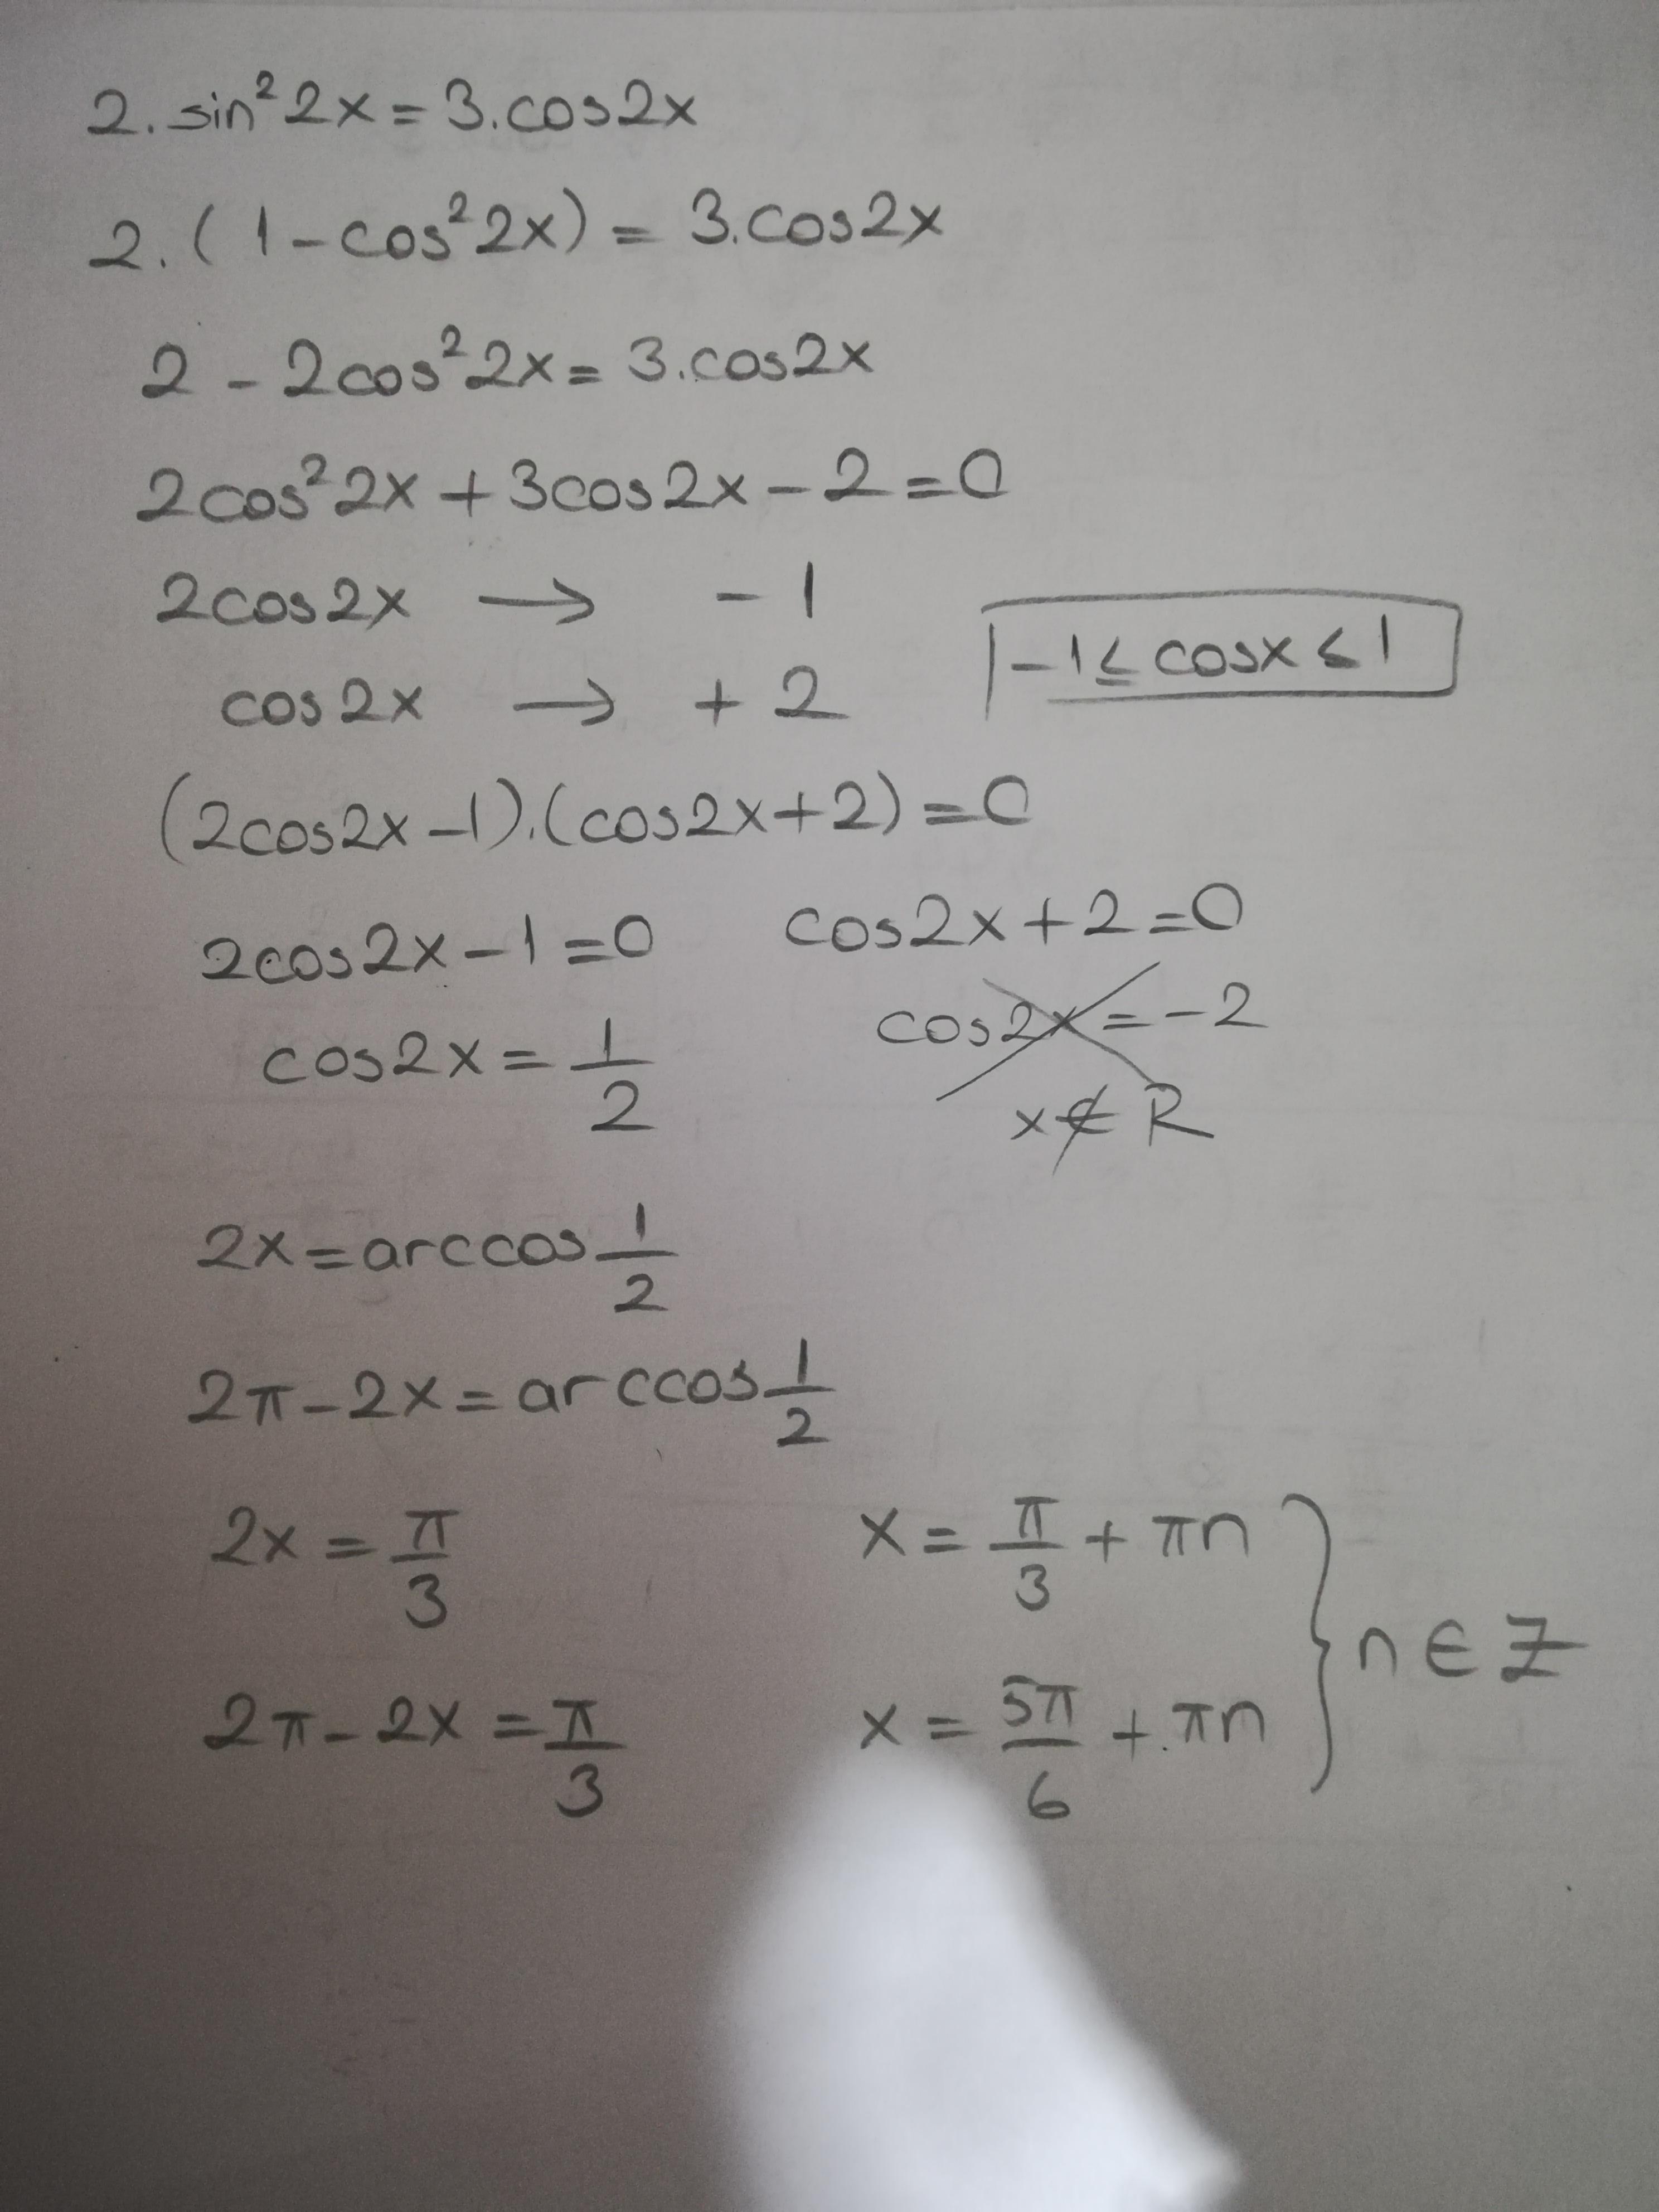 2. sin² 2x = 3. cos2x
2. (1 - cos² 2x) = 3. cos2x
2 - 2cos² 2x = 3. cos2x
2cos² 2x + 3cos2x - 2 = 0
2cos2x → - 1
cos2x → + 2
-1 ≤ cosx ≤ 1
(2cos2x - 1).(cos2x + 2) = 0
2cos2x - 1 = 0 cos2x + 2 = 0
cos2x = 1/2 cos2x = -2
x ∉ R
2x = arccos 1/2
2π - 2x = arccos 1/2
2x = π/3 x = π/3 + πn
n ∈ Z
2π - 2x = π/3 x = 5π/6 + πn